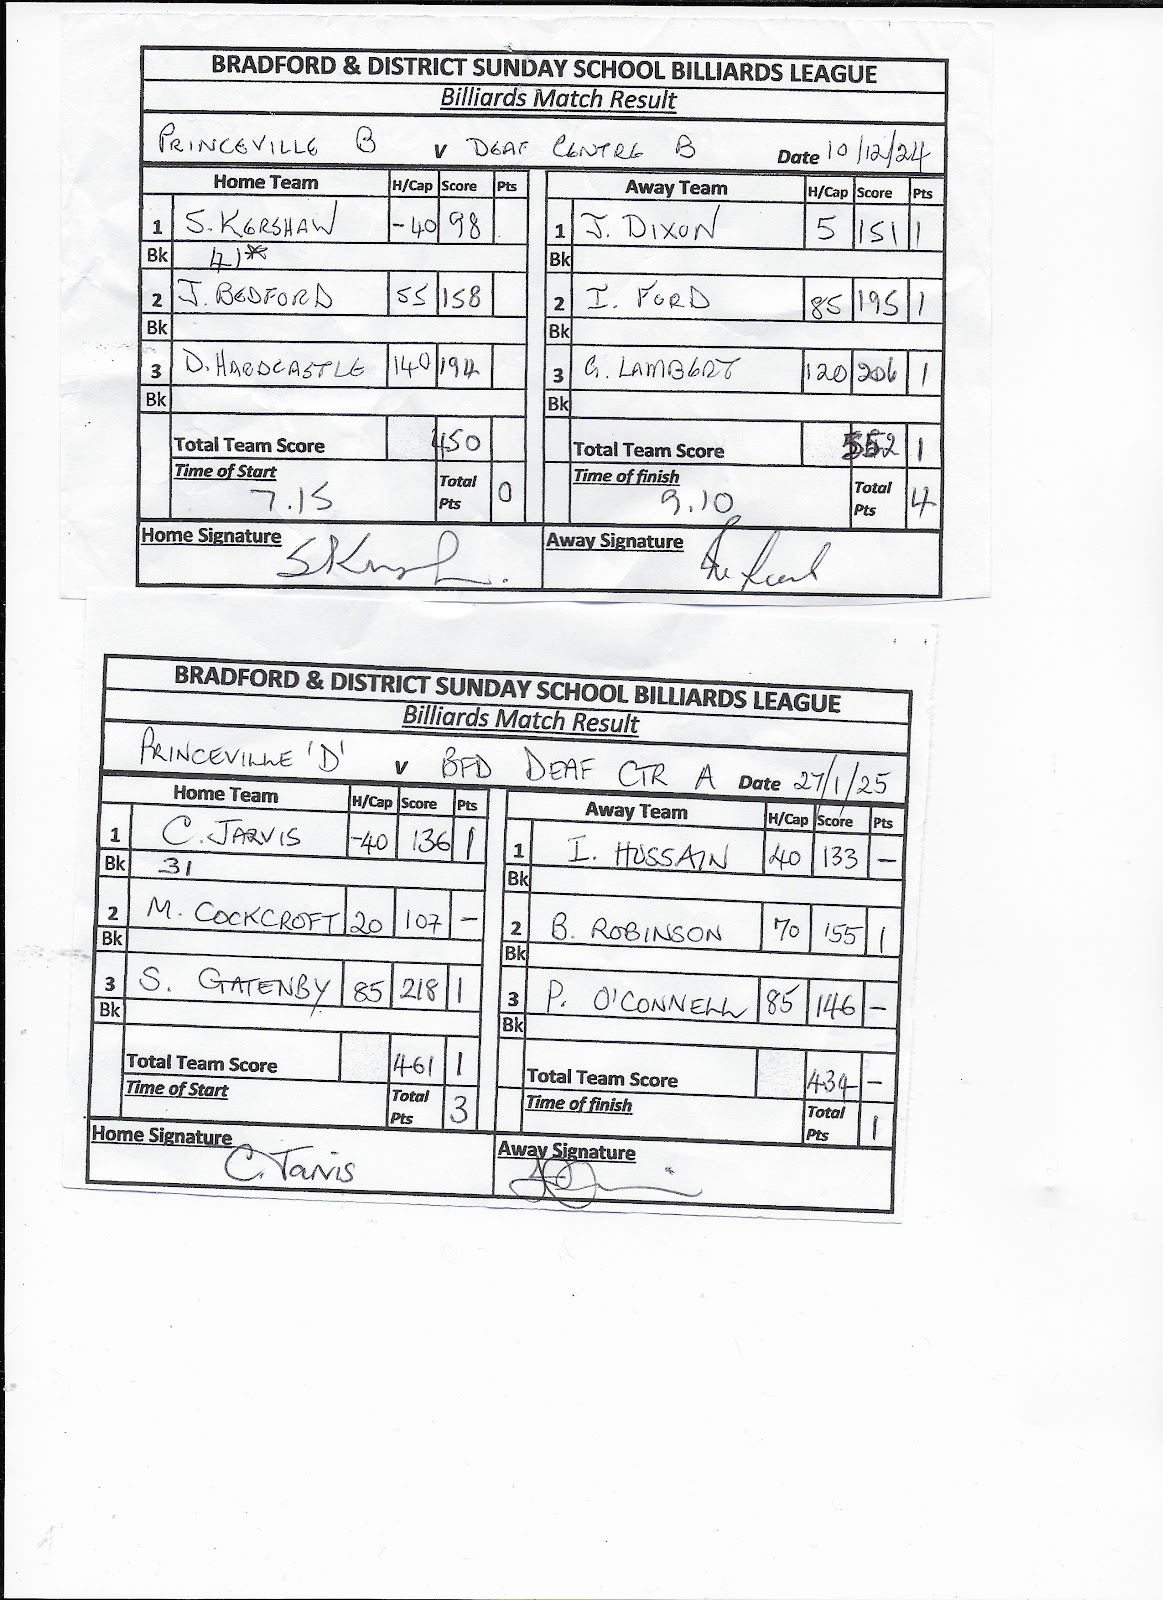 BRADFORD & DISTRICT SUNDAY SCHOOL BILLIARDS LEAGUE
Billiards Match Result
PRINCEVILLE B v DEAF CENTRE B Date 10/12/24
Home Team H/Cap Score Pts Away Team H/Cap Score Pts
1 S. KERSHAW -40 98 1 J. DIXON 5 151 1
Bk 41* Bk
2 J. BEDFORD 55 158 2 I. FORD 85 195 1
Bk Bk
3 D. HARDCASTLE 140 194 3 G. LAMBERT 120 206 1
Bk Bk
Total Team Score 450 Total Team Score 552 1
Time of Start Total Time of finish Total
7.15 Pts 0 9.10 Pts 4
Home Signature Away Signature
BRADFORD & DISTRICT SUNDAY SCHOOL BILLIARDS LEAGUE
Billiards Match Result
PRINCEVILLE 'D' v BFD DEAF CTR A Date 27/1/25
Home Team H/Cap Score Pts Away Team H/Cap Score Pts
1 C. JARVIS -40 136 1 1 I. HUSSAIN 40 133 –
Bk 31 Bk
2 M. COCKCROFT 20 107 – 2 B. ROBINSON 70 155 1
Bk Bk
3 S. GATENBY 85 218 1 3 P. O'CONNELL 85 146 –
Bk Bk
Total Team Score 461 1 Total Team Score 434 –
Time of Start Total Pts 3 Time of finish Total Pts 1
Home Signature Away Signature
C. Jarvis